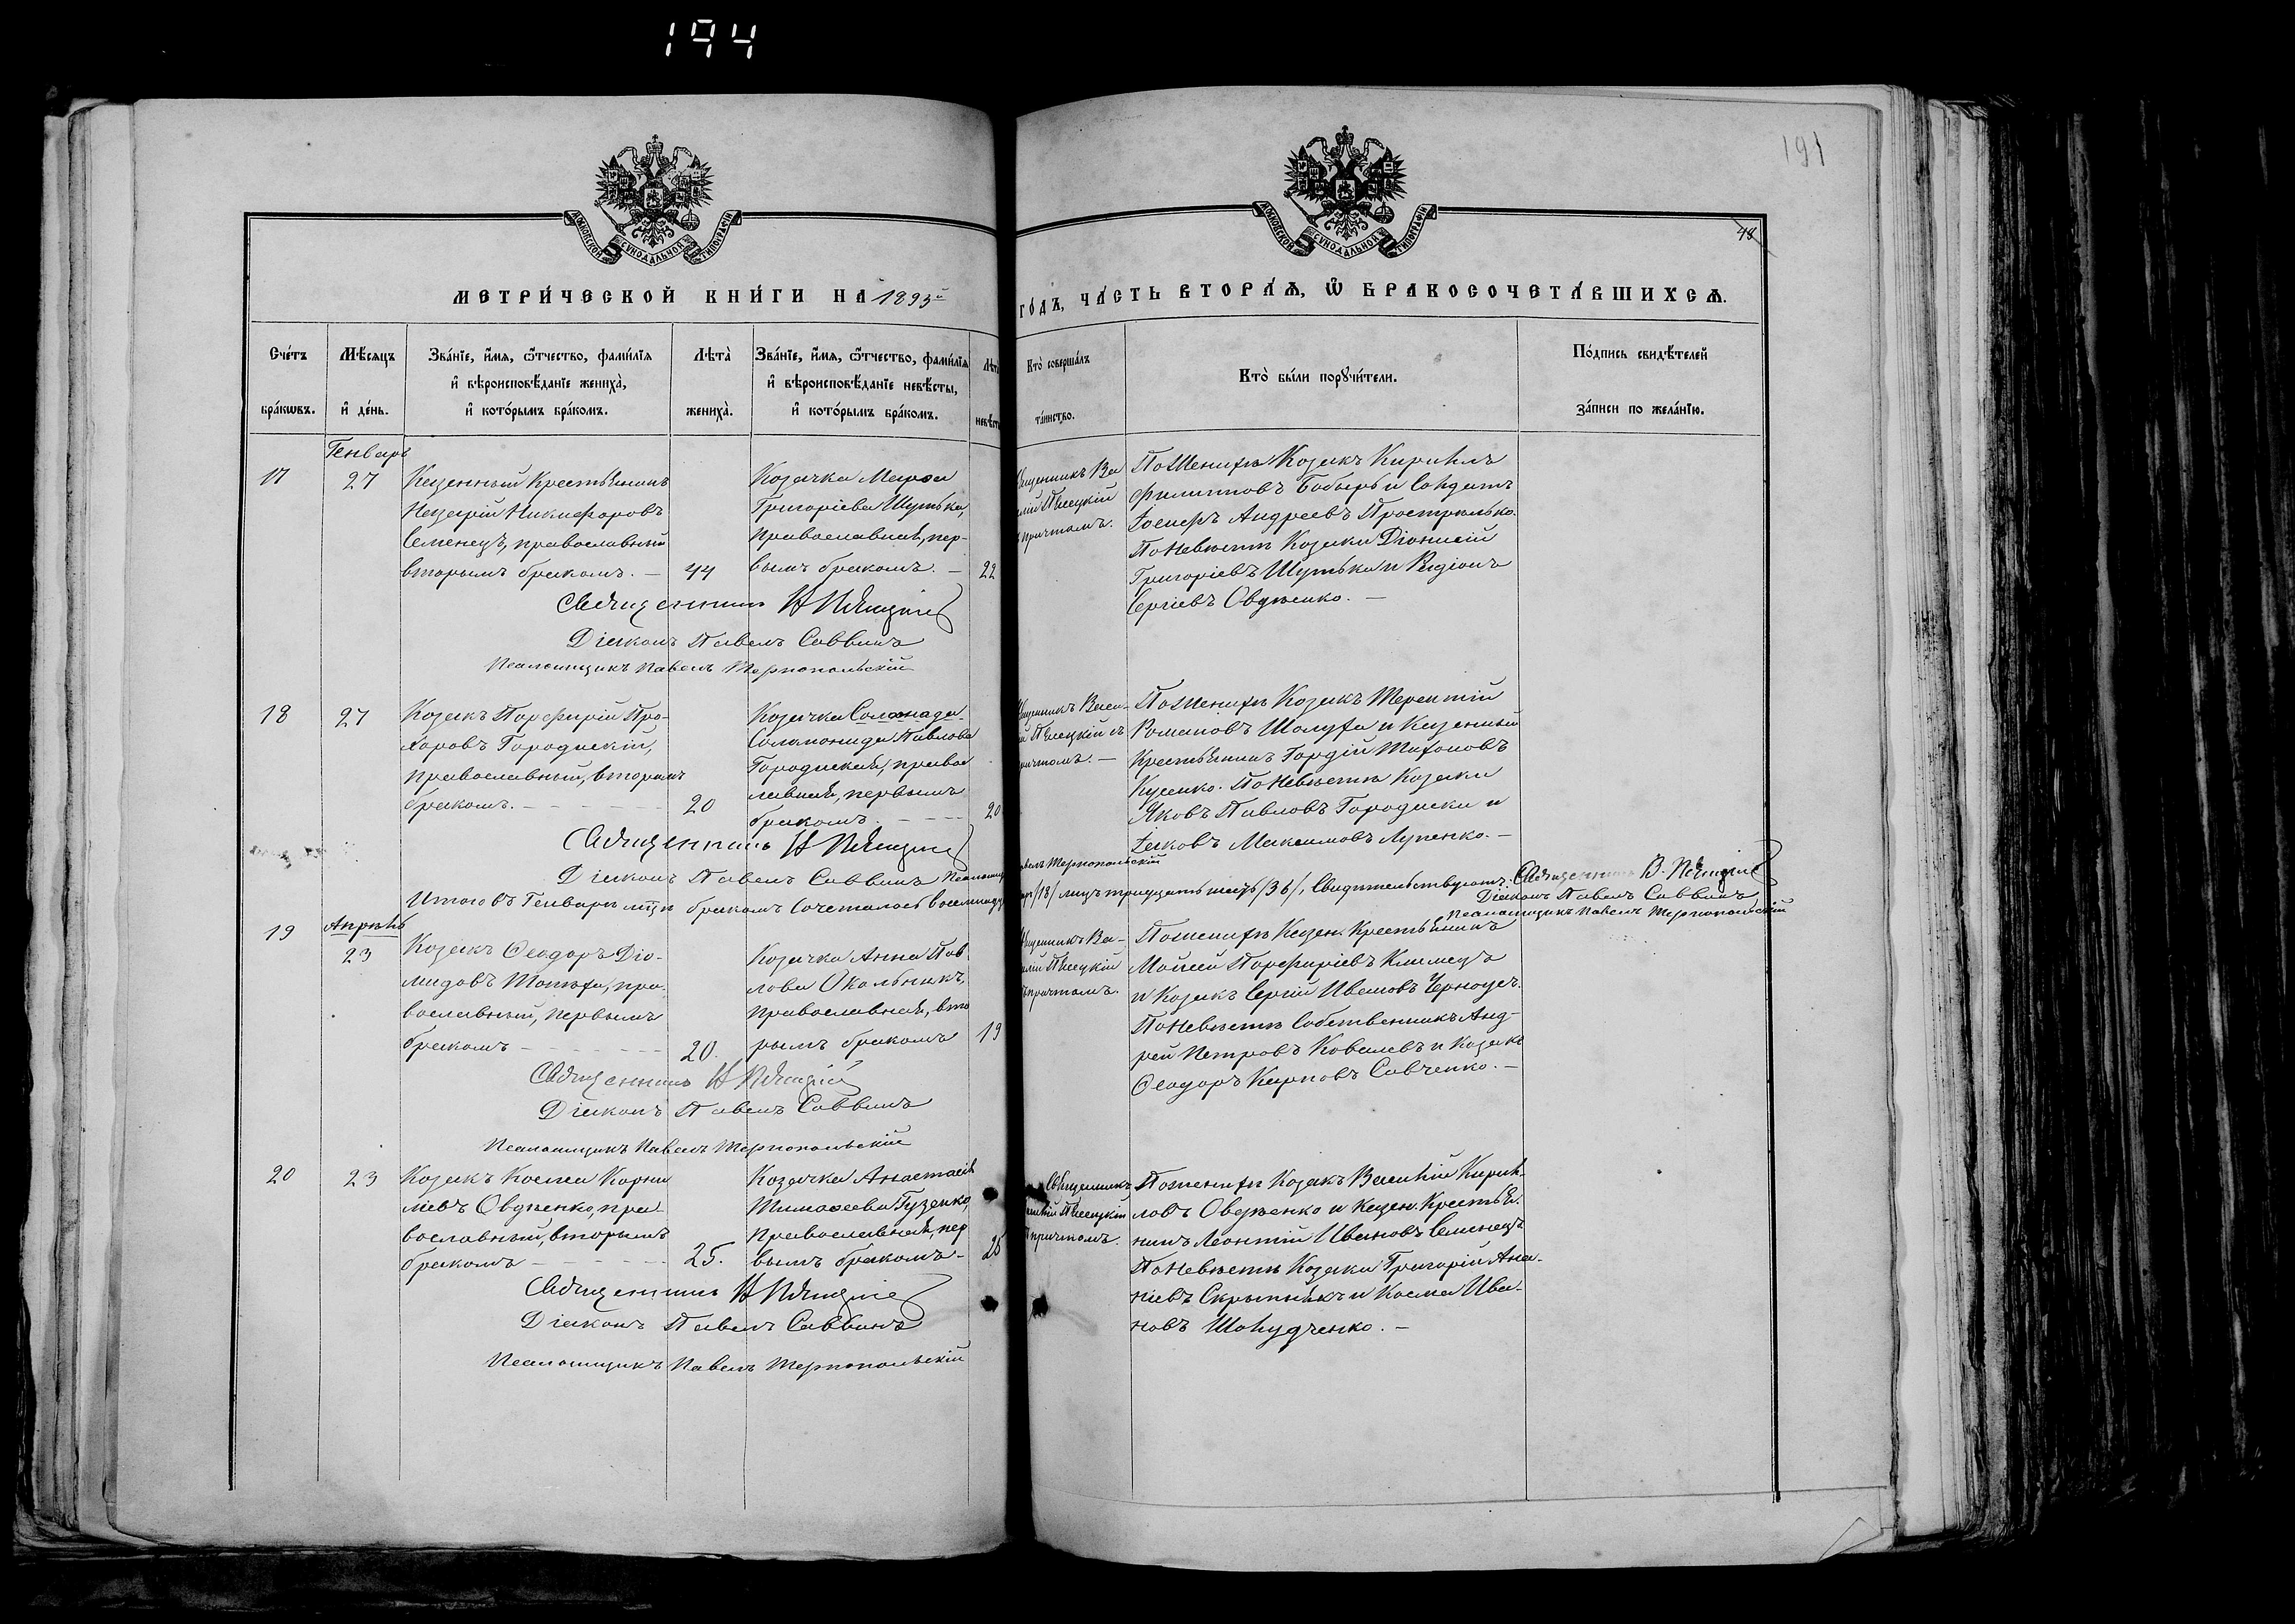 194
191
48
МОСКОВСКОЙ СѴНОДАЛЬНОЙ ТИПОГРАФІИ
МОСКОВСКОЙ СѴНОДАЛЬНОЙ ТИПОГРАФІИ
МЕТРИ́ЧЕСКОЙ КНИ́ГИ НА 1893й
ГО́ДЪ, ЧА́СТЬ ВТОРА́Ѧ, Ѿ БРАКОСОЧЕТА́ВШИХСѦ.
Сче́тъ бра́кѡвъ.
Мѣ́сяцъ и҆ де́нь.
Зва́нїе, и҆́мя, ѻ҆́тчество, фами́лїя
и҆ вѣроисповѣ́данїе жениха̀,
и҆ кото́рымъ бра́комъ.
Лѣта̀ жениха̀.
Зва́нїе, и҆́мя, ѻ҆́тчество, фами́лїя
и҆ вѣроисповѣ́данїе невѣ́сты,
и҆ кото́рымъ бра́комъ.
Лѣта̀ невѣст
Кто̀ соверша́лъ
та́инство.
Кто̀ бы́ли порꙋчи́тели.
По́дпись свидѣ́телей
за́писи по жела́нїю.
Генварь
17
27
Казенный Крестьянинъ
Назарій Никифоровъ
Семенецъ, православный
вторымъ бракомъ. —
44
Козачка Марѳа
Григоріева Шутька,
православная, пер-
вымъ бракомъ. —
22
Священникъ Ва
илій Пясецкій
съ причтомъ.
По Женихѣ Козакъ Кириллъ
Филипповъ Бобырь и Солдатъ
Іосифъ Андреевъ Прострелько.
По Невѣстѣ Козаки Діонисій
Григоріевъ Шутька и Родіонъ
Сергіевъ Овдѣенко. —
Священникъ В Пясецкій
Діаконъ Павелъ Саввинъ
Псаломщикъ Павелъ Тернопольскій
18
27
Козакъ Порфирій Про-
хоровъ Городискій,
православный, вторымъ
бракомъ. —
20
Козачка Соломнада
Соломонида Павлова
Городиская, правос
лавная, первымъ
бракомъ. —
20
Священникъ Васи-
ій Пясецкій съ
причтомъ. —
По Женихѣ Козакъ Терентій
Романовъ Шолуха и Казенный
Крестьянинъ Гордій Тихоновъ
Кусенко. По Невѣстѣ Козаки
Яковъ Павловъ Городиски и
Іаковъ Максимовъ Лупенко. —
Священникъ В Пясецкій
Діаконъ Павелъ Саввинъ Псаломщ
авелъ Тернопольскій
Итого въ Генварѣ мцѣ бракомъ сочеталось восемнадц
ать /18/ лицъ тридцать шесть /36/, Свидѣтельствуютъ: Священникъ В. Пясецкій
Діаконъ Павелъ Саввинъ
Псаломщикъ Павелъ Тернопольскій
Апрѣль
19
23
Козакъ Ѳеодоръ Діо-
мидовъ Топѣха, пра-
вославный, первымъ
бракомъ —
20.
Козачка Анна Пав
лова Окольникъ,
православная, вто
рымъ бракомъ
19
Священникъ Ва-
илій Пясецкій
съ причтомъ.
По женихѣ Казен. Крестьянинъ
Моисей Порфиріевъ Климецъ
и Козакъ Сергій Ивановъ Черноусъ.
По Невѣстѣ Собственникъ Анд-
рей Петровъ Ковалевъ и Козакъ
Ѳеодоръ Карповъ Савченко. —
Священникъ В Пясецкій
Діаконъ Павелъ Саввинъ
Псаломщикъ Павелъ Тернопольскій
20
23
Козакъ Косма Корни
ліевъ Овдѣенко, пра
вославный, вторымъ
бракомъ —
25.
Козачка Анастасія
Тимоѳеева Гузенко,
православная, пер
вымъ бракомъ —
25
Священникъ
силій Пясецкій
съ причтомъ.
По женихѣ Козакъ Василій Кирил-
ловъ Овдѣенко и Казен. Крестья-
нинъ Леонтій Ивановъ Семенецъ
По Невѣстѣ Козаки Григорій Ана-
ніевъ Скрыпникъ и Косма Ива-
новъ Шокудченко. —
Священникъ В Пясецкій
Діаконъ Павелъ Саввинъ
Псаломщикъ Павелъ Тернопольскій